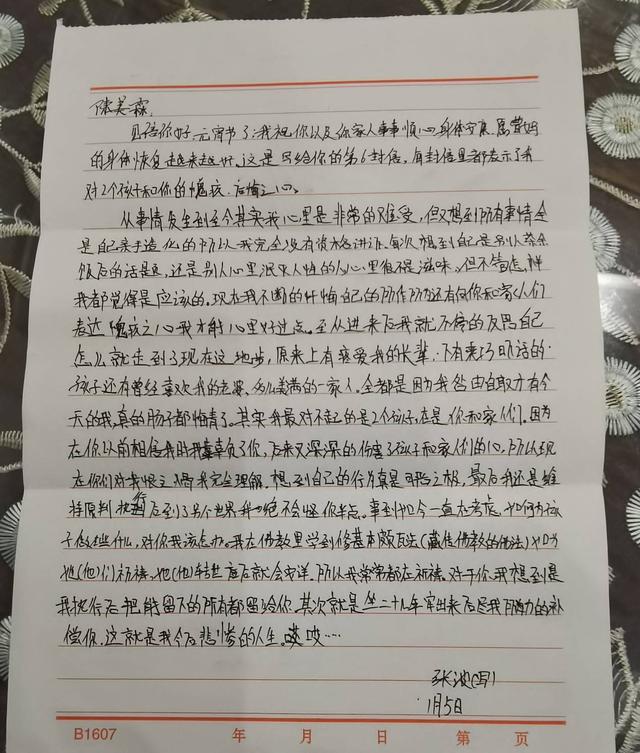 陈美霖,
见信你好,元宵节了,我祝你以及你家人事事顺心身体安康,愿爸妈
的身体恢复越来越好,这是写给你的第6封信,每封信里都表示了我
对2个孩子和你的愧疚,后悔之心。
从事情发生到至今其实我心里是非常的难受,但又想到所有事情全
是自己亲手造化的所以我完全没有资格讲诉。每次想到自己是别人茶余
饭后的话题,还是别人心里泯灭人性的人心里很不是滋味,但不管怎样
我都觉得是应该的。现在我不断的忏悔自己的所作所为还有向你和家人们
表达愧疚之心我才能心里好过点。至从进来后我就不停的反思自己
怎么就走到了现在这地步,原来上有疼爱我的长辈,下有乖巧听话的
孩子还有曾经喜欢我的老婆、多么美满的一家人。全都是因为我咎由自取才有今
天的我,真的肠子都悔青了。其实我最对不起的是2个孩子,在是你和家人们。因为
在你以前相信我时我辜负了你,后来又深深的伤害了孩子和家人们的心,所以现
在你们对我恨之入骨我完全理解,想到自己的行为真是可恶之极,最后我还是维
持原判执行后到了另个世界我也绝不会怪你半点。事到如今一直在考虑,如何为孩
子做些什么,对你我该怎办。我在佛教里学到修基本颇瓦法(藏传佛教的佛法)如为
他(他)们祈祷,他(他)转世度后就会安详,所以我常常都在祈祷。对于你,我想到是
我执行后把能留下的所有都留给你。其次就是坐二十九年牢出来后尽我所能力的补
偿你,这就是我今后悲惨的人生。哎哎……
张波(写)
1月5日
B1607 年 月 日 第 页